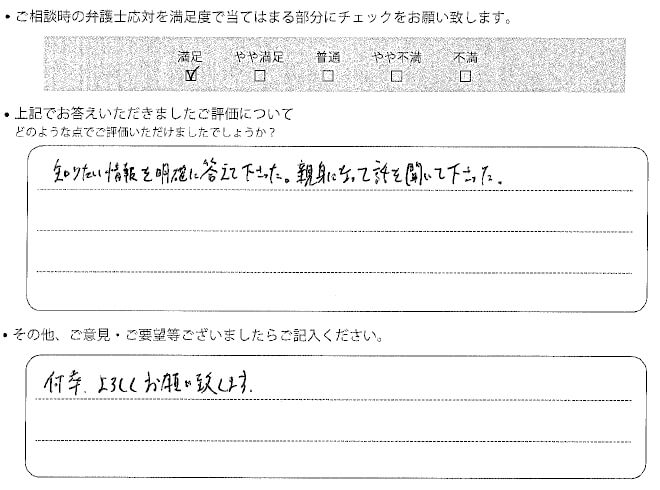 • ご相談時の弁護士応対を満足度で当てはまる部分にチェックをお願い致します。
満足 やや満足 普通 やや不満 不満
☑ □ □ □ □
• 上記でお答えいただきましたご評価について
どのような点でご評価いただけましたでしょうか?
知りたい情報を明確に答えて下さった。親身になって話を聞いて下さった。
• その他、ご意見・ご要望等ございましたらご記入ください。
よろしくお願い致します.